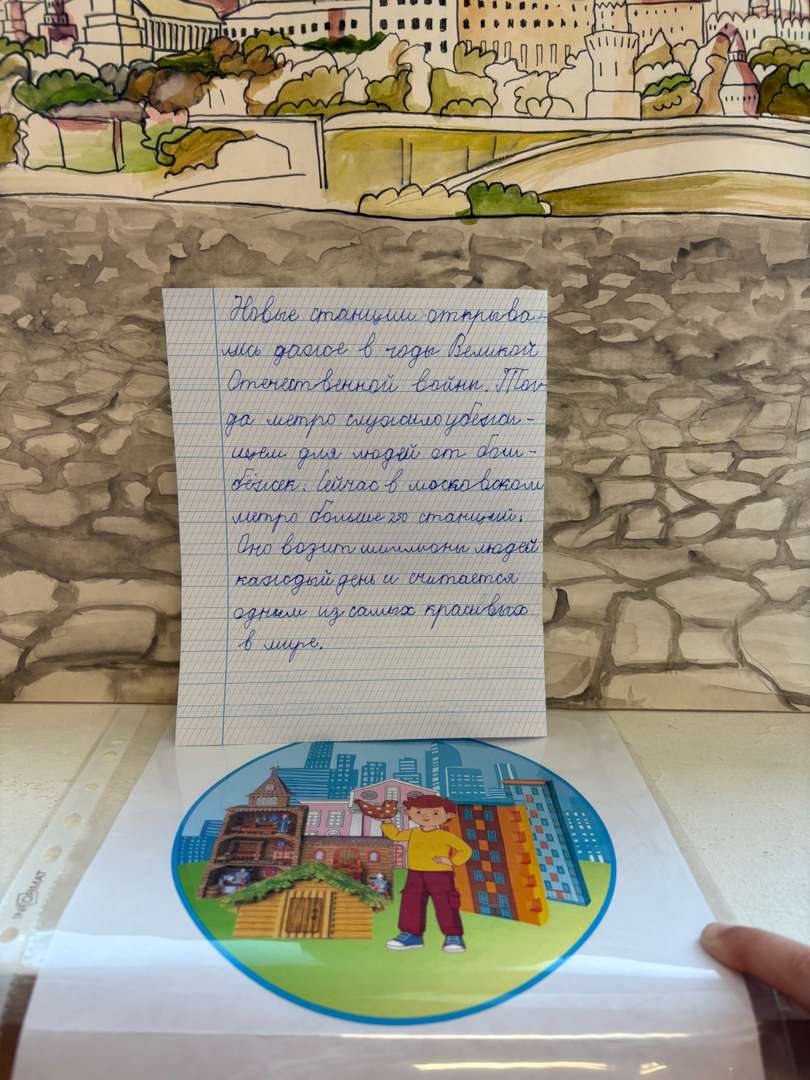 Новые станции открыва-
лись даже в годы Великой
Отечественной войны. Тог-
да метро служило убежи-
щем для людей от бом-
бёжек. Сейчас в московском
метро больше 250 станций.
Оно возит миллионы людей
каждый день и считается
одним из самых красивых
в мире.
INFORMAT